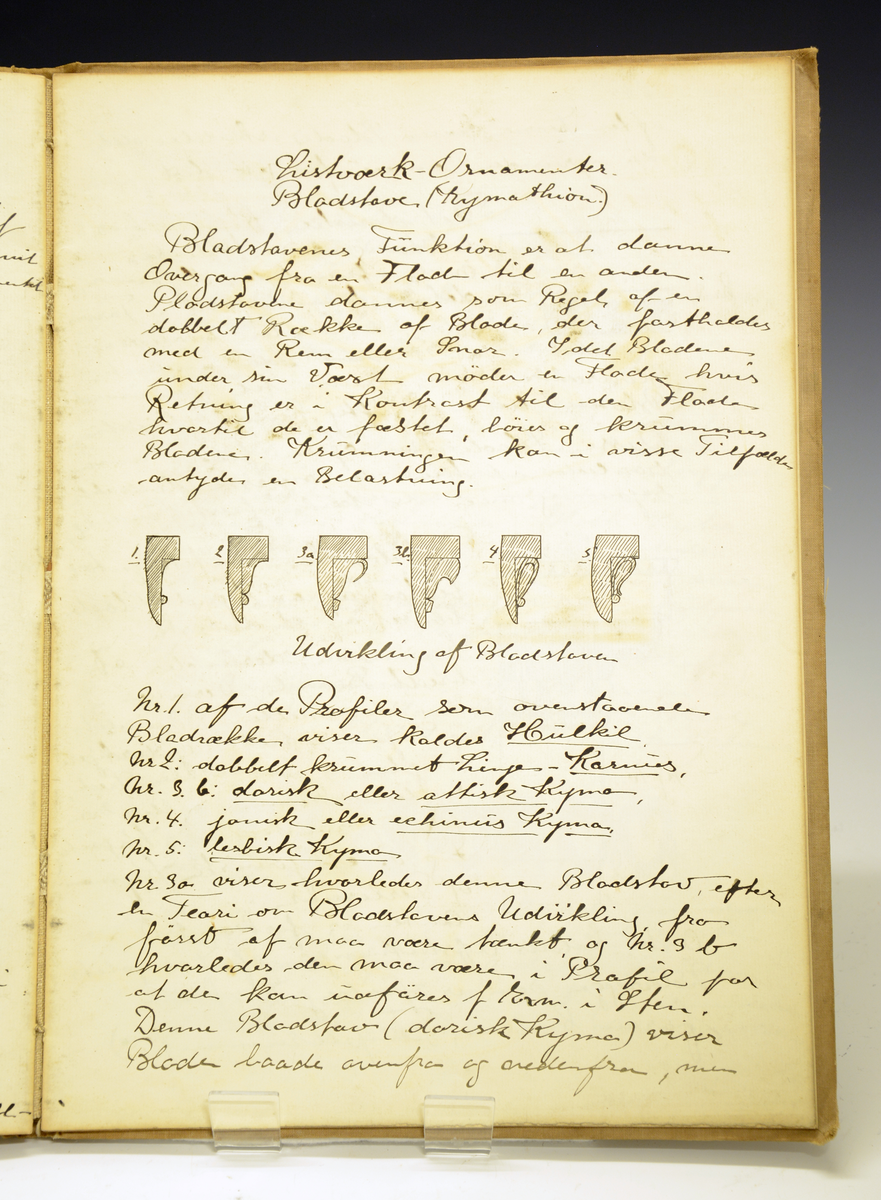 Listværk-Ornamenter.
Bladstave (Kymathion.)
Bladstavenes Funktion er at danne
Overgang fra en Flade til en anden.
Bladstavene dannes som Regel af en
dobbelt Række af Blade, der fastholdes
med en Rem eller Snor. Idet Bladene
under sin Væxt møder en Flade hvis
Retning er i Kontrast til den Flade
hvortil de er fæstet, böies og krummes
Bladene. Krumningen kan i visse Tilfælde
antyde en Belastning.
1. 2 3a 3b. 4 5
Udvikling af Bladstaven
Nr. 1. af de Profiler som ovenstaaende
Bladrække viser kaldes Hulkil,
Nr 2: dobbelt krummet Linje - Karnies,
Nr. 3. b: dorisk eller attisk Kyma,
Nr. 4. jonisk eller echinus Kyma,
Nr. 5: lesbisk Kyma
Nr. 3a viser hvorledes denne Bladstav, efter
en Teori om Bladstavens Udvikling, fra
først af maa være tænkt, og Nr. 3 b
hvorledes den maa være i Profil for
at den kan udføres f. Ex. i Sten.
Denne Bladstav (dorisk Kyma) viser
Bladene baade ovenfra og nedenfra, men